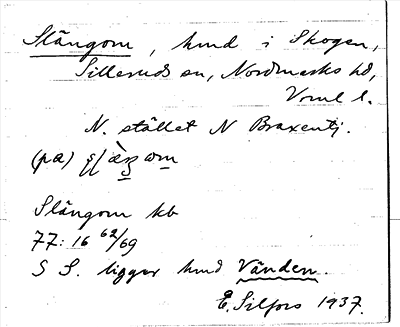 Slängom, hmd i Skogen,
Silleruds sn, Nordmarks hd,
Vrml l.
N. stället N Braxentj.
(på)
Slängom kb
77:16 62/69
S S. ligger hmd Vänden.
E. Silfors 1937.